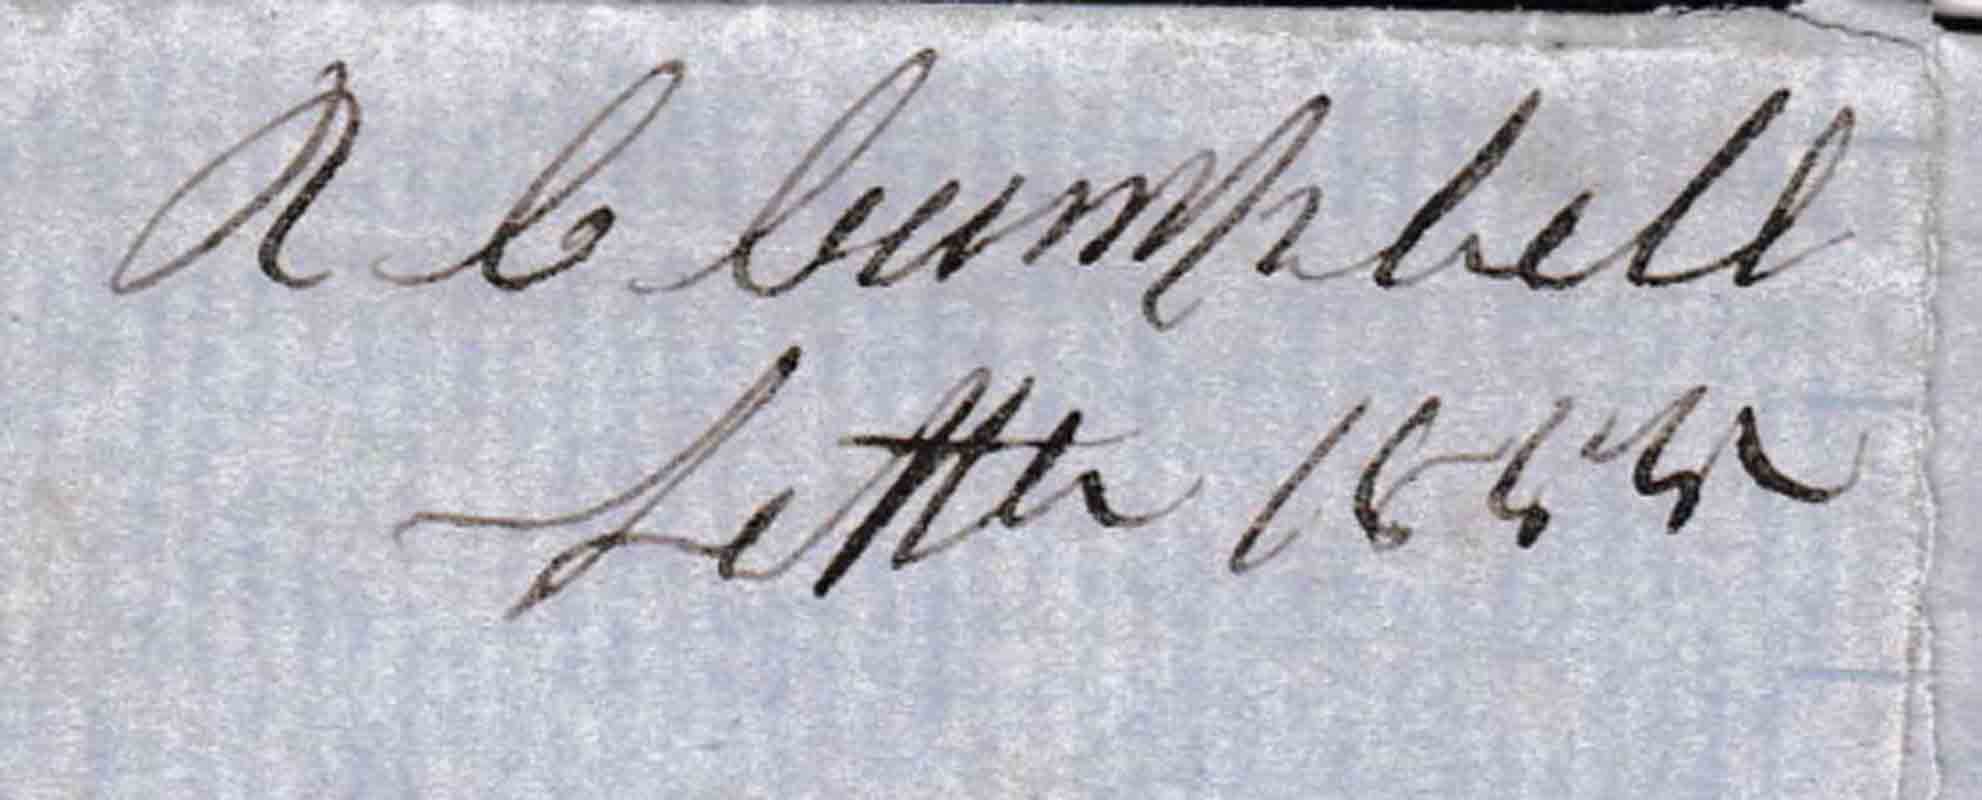 A C Campbell
Letter 1855